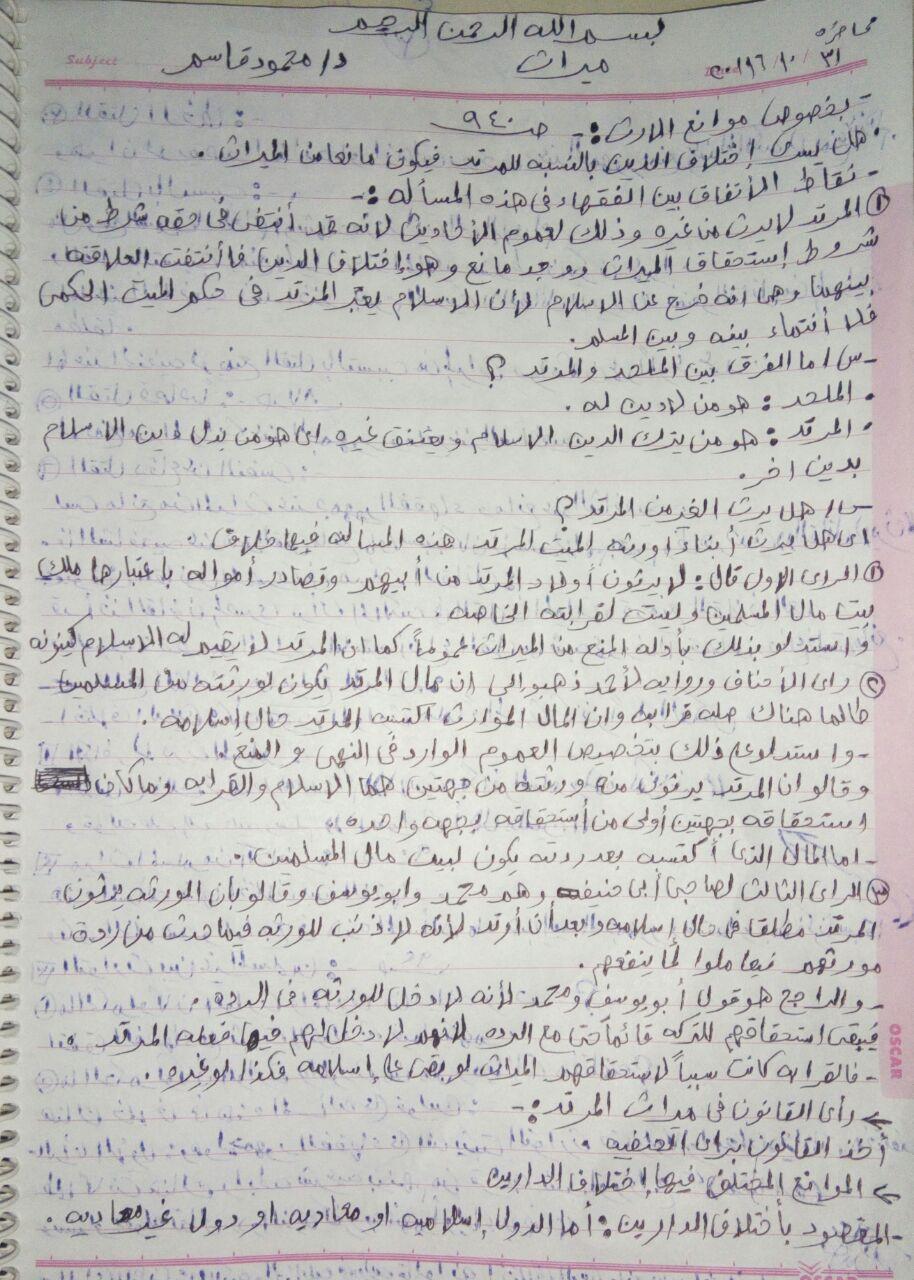 بسم الله الرحمن الرحيم
محاضرة
Subject
د/ محمود قاسم
ميراث
٣١/ ١٠/ ٢٠١٩٦
- بخصوص موانع الارث :- صـ ٩٤٠
• هل يسرى إختلاف الدين بالنسبه للمرتد فيكون مانعا من الميراث .
- نقاط الأتفاق بين الفقهاء فى هذه المسأله :-
① المرتد لا يرث من غيره وذلك لعموم الأحاديث لأنه قد أنتفى فى حقه شرط من
شروط إستحقاق الميراث ووجد مانع وهو إختلاف الدين فأنتفت العلاقه
بينهما وهى انه خرج عن الاسلام لأن الاسلام يعتبر المرتد فى حكم الميت الحكمى
فلا أنتماء بينه وبين المسلم.
- س/ ما الفرق بين الملحد والمرتد ؟
• الملحد : هو من لا دين له .
• المرتد : هو من يترك الدين الاسلام ويعتنق غيره اى هو من بدل دين الاسلام
بدين اخر.
- س/ هل يرث الغير من المرتد ؟
اى هل يرث أبناء اورثه الميت المرتد هذه المسأله فيها خلاف .
① الراى الاول قال : لا يرثون أولاد المرتد من أبيهم وتصادر أمواله باعتبارها ملك
بيت مال المسلمين وليست لقرابته الخاصه .
واستدلو بذلك بأدله المنع من الميراث عموماً كما ان المرتد لا يقيم له الاسلام كينونه
② راى الأحناف وروايه لأحمد ذهبو الى ان مال المرتد يكون لورثته من المسلمين
طالما هناك صله قرابه وان المال الموروث اكتسبه المرتد حال إسلامه .
- واستدلو على ذلك بتخصيص العموم الوارد فى النهى و المنع .
وقالو ان المرتد يرثون منه ورثته من جهتين هما الاسلام والقرابه وما كان
استحقاقه بجهتين أولى من أستحقاقه بجهه واحده .
- اما المال الذى أكتسبه بعد ردته يكون لبيت مال المسلمين .
③ الراى الثالث لصاحبى أبى حنيفه وهم محمد وابو يوسف وقالو بأن الورثه يرثون
المرتد مطلقا فى حال إسلامه وبعد أن أرتد لأنه لا ذنب للورثه فيما حدث من ردة
مورثهم فيعاملوا بما ينفعهم .
- والراجح هو قول أبو يوسف ومحمد لأنه لا دخل للورثه فى الرده .
فيبقى استحقاقهم للتركه قائماً حتى مع الرده لأنهم لا دخل لهم فيما فعله المرتد .
- فالقرابه كانت سبباً لاستحقاقهم الميراث لو بقى على إسلامه فكذا لو غيره .
> رأى القانون فى ميراث المرتد :-
أخذ القانون براى الحنفيه
> الموانع المختلف فيها إختلاف الدارين
- المقصود بأختلاف الدارين : أما الدول إسلاميه او معاديه او دول غير معاديه .
OSCAR